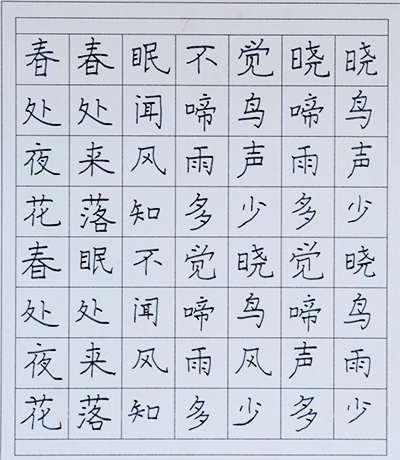 春春眠不觉晓晓
处处闻啼鸟啼鸟
夜来风雨声雨声
花落知多少多少
春眠不觉晓觉晓
处处闻啼鸟啼鸟
夜来风雨风声雨
花落知多少多少